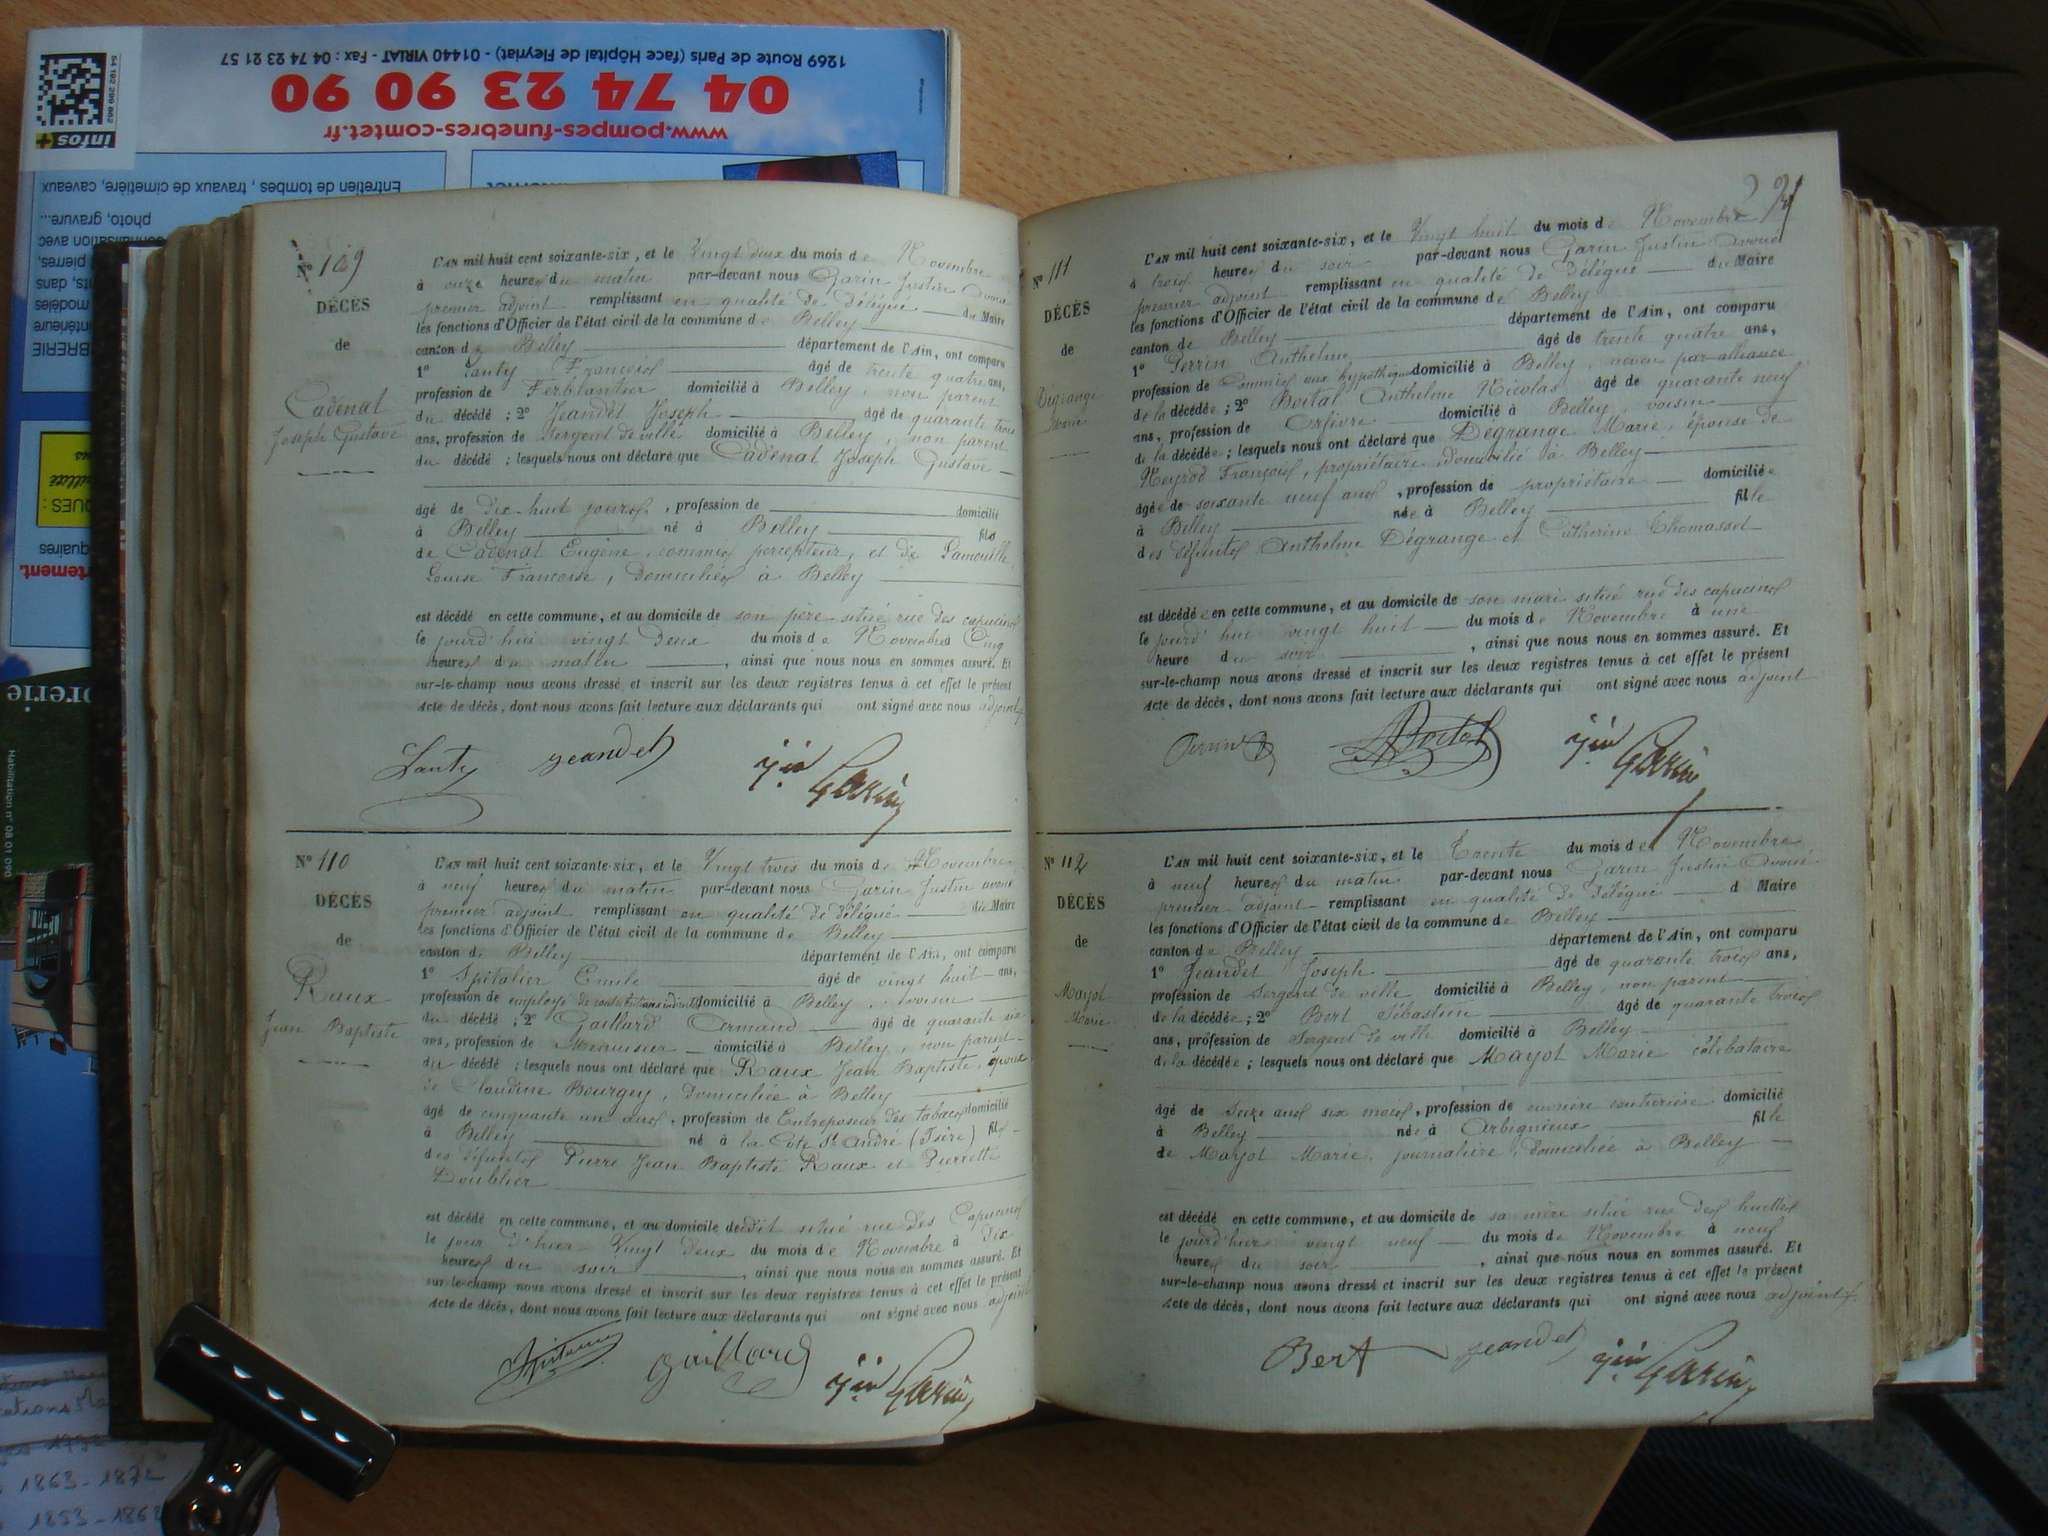 1269 Route de Paris (face Hôpital de Fleyriat) - 01440 VIRIAT - Fax : 04 74 23 21 57
04 74 23 90 90
www.pompes-funebres-comtet.fr
infos+
54 192 299 862
Entretien de tombes, travaux de cimetière, caveaux
photo, gravure...
avec
pierres,
dans
modèles
Habilitation n° 08 01 090
1863-1872
1853-1862
N° 109
DÉCÈS
de
Cadenat
Joseph Gustave
L'AN mil huit cent soixante-six, et le Vingt deux du mois de Novembre
à onze heures du matin par-devant nous Garin Justin avoué
premier adjoint remplissant en qualité de délégué du Maire
les fonctions d'Officier de l'état civil de la commune de Belley
canton de Belley département de l'Ain, ont comparu
1° Lanty François âgé de trente quatre ans,
profession de Ferblantier domicilié à Belley, non parent
du décédé ; 2° Jeandet Joseph âgé de quarante trois
ans, profession de Sergent de ville domicilié à Belley, non parent
du décédé ; lesquels nous ont déclaré que Cadenat Joseph Gustave
âgé de dix-huit jours, profession de domicilié
à Belley né à Belley fils
de Cadenat Eugène, commis percepteur, et de
Louise Françoise, domiciliés à Belley
est décédé en cette commune, et au domicile de son père situé rue des capucins
le jourd'hui vingt deux du mois de Novembre Cinq
heures du matin, ainsi que nous nous en sommes assuré. Et
sur-le-champ nous avons dressé et inscrit sur les deux registres tenus à cet effet le présent
acte de décès, dont nous avons fait lecture aux déclarants qui ont signé avec nous adjoint
Lanty Jeandet Jin Garin
N° 110
DÉCÈS
de
Raux
Jean Baptiste
L'AN mil huit cent soixante-six, et le Vingt trois du mois de Novembre
à neuf heures du matin par-devant nous Garin Justin avoué
premier adjoint remplissant en qualité de délégué du Maire
les fonctions d'Officier de l'état civil de la commune de Belley
canton de Belley département de l'Ain, ont comparu
1° Spitalier Emile âgé de vingt huit ans,
profession de employé de contributions indirectes domicilié à Belley, voisin
du décédé ; 2° Gaillard Armand âgé de quarante
ans, profession de Menuisier domicilié à Belley, non parent
du décédé ; lesquels nous ont déclaré que Raux Jean Baptiste, époux
de Claudine Bourgey, domiciliée à Belley
âgé de cinquante un ans, profession de Entreposeur des tabacs domicilié
à Belley né à la Côte St André (Isère) fils
des défunts Pierre Jean Baptiste Raux et Pierrette
Doublier
est décédé en cette commune, et au domicile dudit situé rue des Capucins
le jour d'hier Vingt deux du mois de Novembre à dix
heures du soir, ainsi que nous nous en sommes assuré. Et
sur-le-champ nous avons dressé et inscrit sur les deux registres tenus à cet effet le présent
acte de décès, dont nous avons fait lecture aux déclarants qui ont signé avec nous adjoint
Gaillard Jin Garin
N° 111
DÉCÈS
de
Dégrange
Marie
L'AN mil huit cent soixante-six, et le Vingt huit du mois de Novembre
à trois heures du soir par-devant nous Garin Justin avoué
premier adjoint remplissant en qualité de délégué du Maire
les fonctions d'Officier de l'état civil de la commune de Belley
canton de Belley département de l'Ain, ont comparu
1° Perrin Anthelme âgé de trente quatre ans,
profession de Commis aux hypothèques domicilié à Belley, neveu par alliance
de la décédée ; 2° Boital Anthelme Nicolas âgé de quarante neuf
ans, profession de Orfèvre domicilié à Belley, voisin
de la décédée ; lesquels nous ont déclaré que Dégrange Marie, épouse de
Neyrod François, propriétaire domicilié à Belley
âgée de soixante neuf ans, profession de propriétaire domiciliée
à Belley née à Belley fille
des défunts Anthelme Dégrange et Catherine Thomasset
est décédée en cette commune, et au domicile de son mari situé rue des capucins
le jourd'hui vingt huit du mois de Novembre à une
heure du soir, ainsi que nous nous en sommes assuré. Et
sur-le-champ nous avons dressé et inscrit sur les deux registres tenus à cet effet le présent
acte de décès, dont nous avons fait lecture aux déclarants qui ont signé avec nous adjoint
Perrin Boital Jin Garin
N° 112
DÉCÈS
de
Mayot
Marie
L'AN mil huit cent soixante-six, et le Trente du mois de Novembre
à neuf heures du matin par-devant nous Garin Justin avoué
premier adjoint remplissant en qualité de délégué d Maire
les fonctions d'Officier de l'état civil de la commune de Belley
canton de Belley département de l'Ain, ont comparu
1° Jeandet Joseph âgé de quarante trois ans,
profession de Sergent de ville domicilié à Belley, non parent
de la décédée ; 2° Bert Sébastien âgé de quarante trois
ans, profession de Sergent de ville domicilié à Belley
de la décédée ; lesquels nous ont déclaré que Mayot Marie célibataire
âgé de Seize ans six mois, profession de ouvrière couturière domicilié
à Belley née à Arbignieux fille
de Mayot Marie, journalière, domiciliée à Belley
est décédé en cette commune, et au domicile de sa mère situé rue des
le jourd'hier vingt neuf du mois de Novembre à neuf
heures du soir, ainsi que nous nous en sommes assuré. Et
sur-le-champ nous avons dressé et inscrit sur les deux registres tenus à cet effet le présent
acte de décès, dont nous avons fait lecture aux déclarants qui ont signé avec nous adjoint
Bert Jeandet Jin Garin